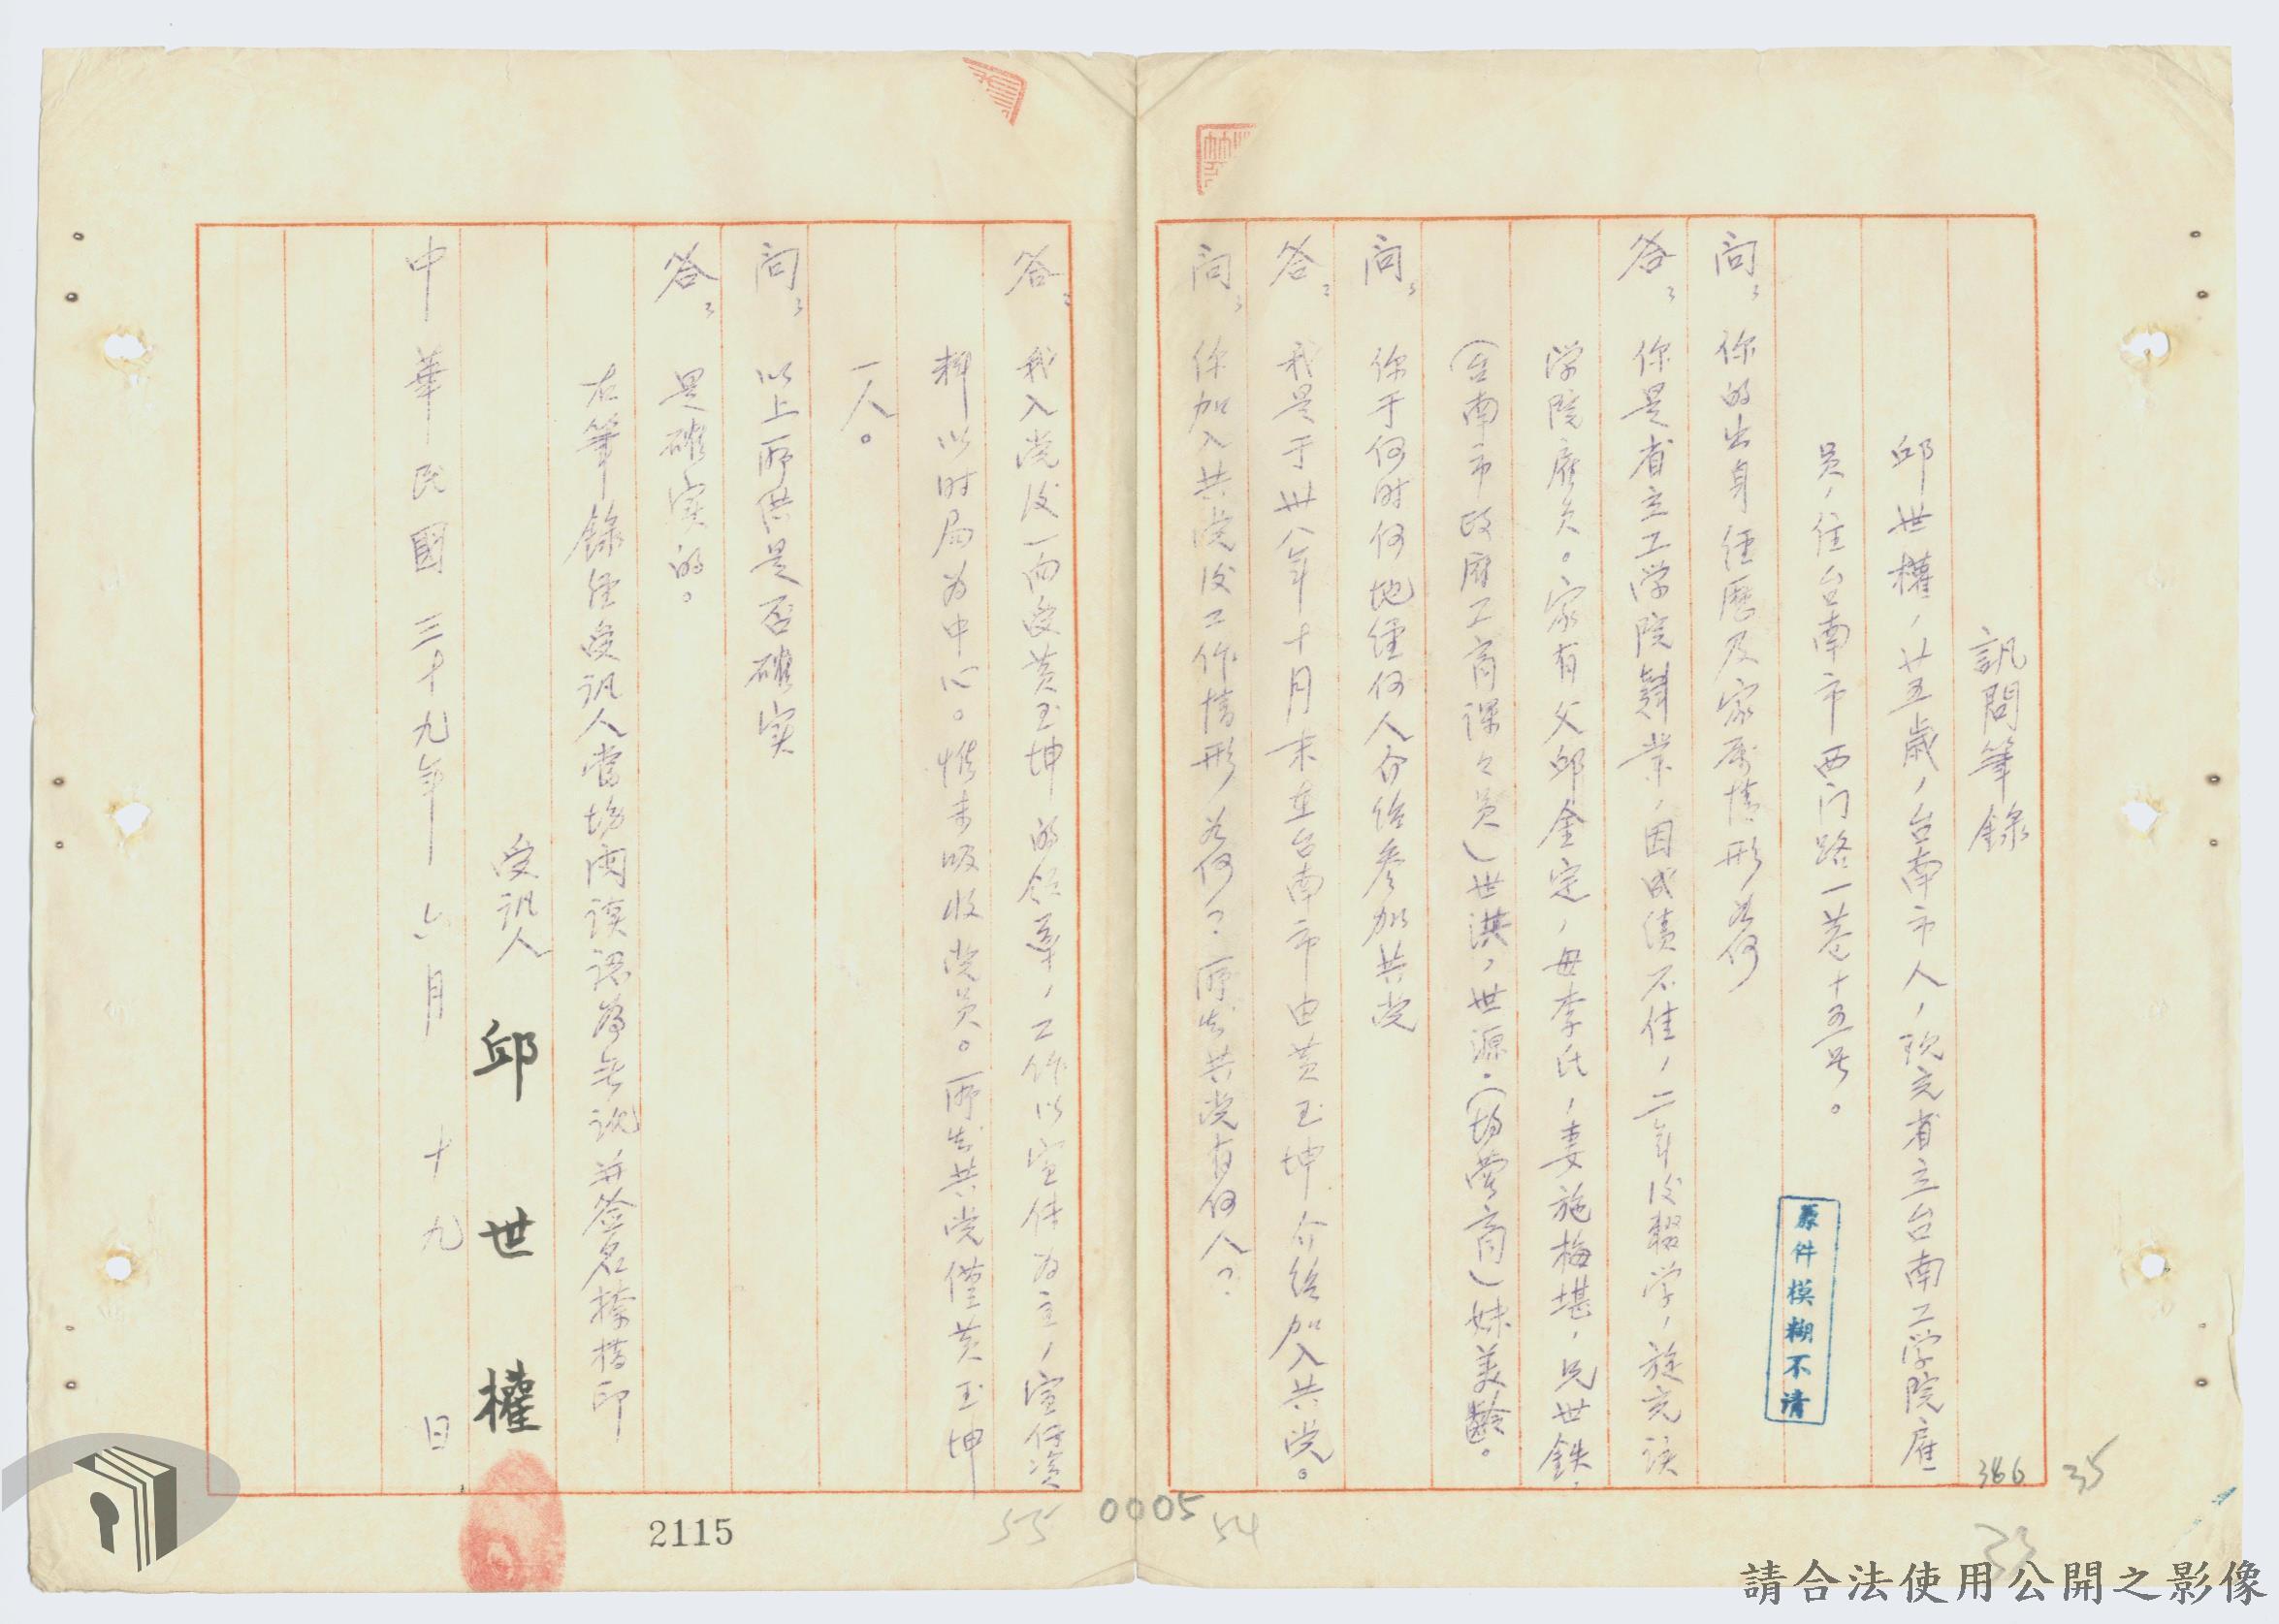 訊問筆錄
邱世權，廿五歲，台南市人，現充省立台南工学院雇
員，住台南市西门路一巷十五号。
問：你的出身經歷及家屬情形若何
答：你是省立工学院肄業，因成績不佳，二年後輟学，旋充該
学院雇员。家有父邱金定，母李氏，妻施梅堪，兄世鉄．
（台南市政府工商課々员）世洪，世源．（均营商）妹美齡。
問：你于何时何地經何人介绍参加共党
答：我是于卅八年十月末在台南市由黄玉坤介绍加入共党。
問：你加入共党後工作情形若何？所告共党有何人？
答：我入党後一向受黄玉坤的领導，工作以宣传为主，宣传资
料以时局为中心。惟未吸收党员。所告共党僅黄玉坤
一人。
問：以上所供是否確实
答：是確实的。
右筆錄經受讯人當場閱读認為無讹并签名捺指印
受讯人 邱世權
中華民國三十九年六月十九日
原件模糊不清
366
35
33
54
0005
55
2115
請合法使用公開之影像